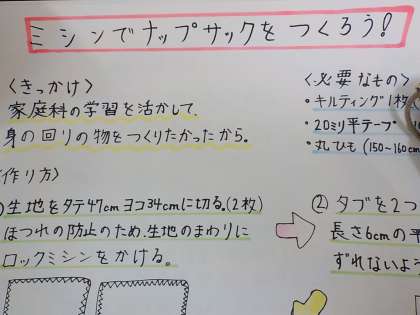 ミシンでナップサックをつくろう!
〈きっかけ〉
家庭科の学習を活かして、
身の回りの物をつくりたかったから。
〈必要なもの〉
・キルティング1枚
・20ミリ平テープ
・丸ひも(150~160cm
作り方〉
①生地をタテ47cmヨコ34cmに切る。(2枚)
ほつれの防止のため、生地のまわりに
ロックミシンをかける。
②タブを2つ
長さ6cmの平
ずれないよう